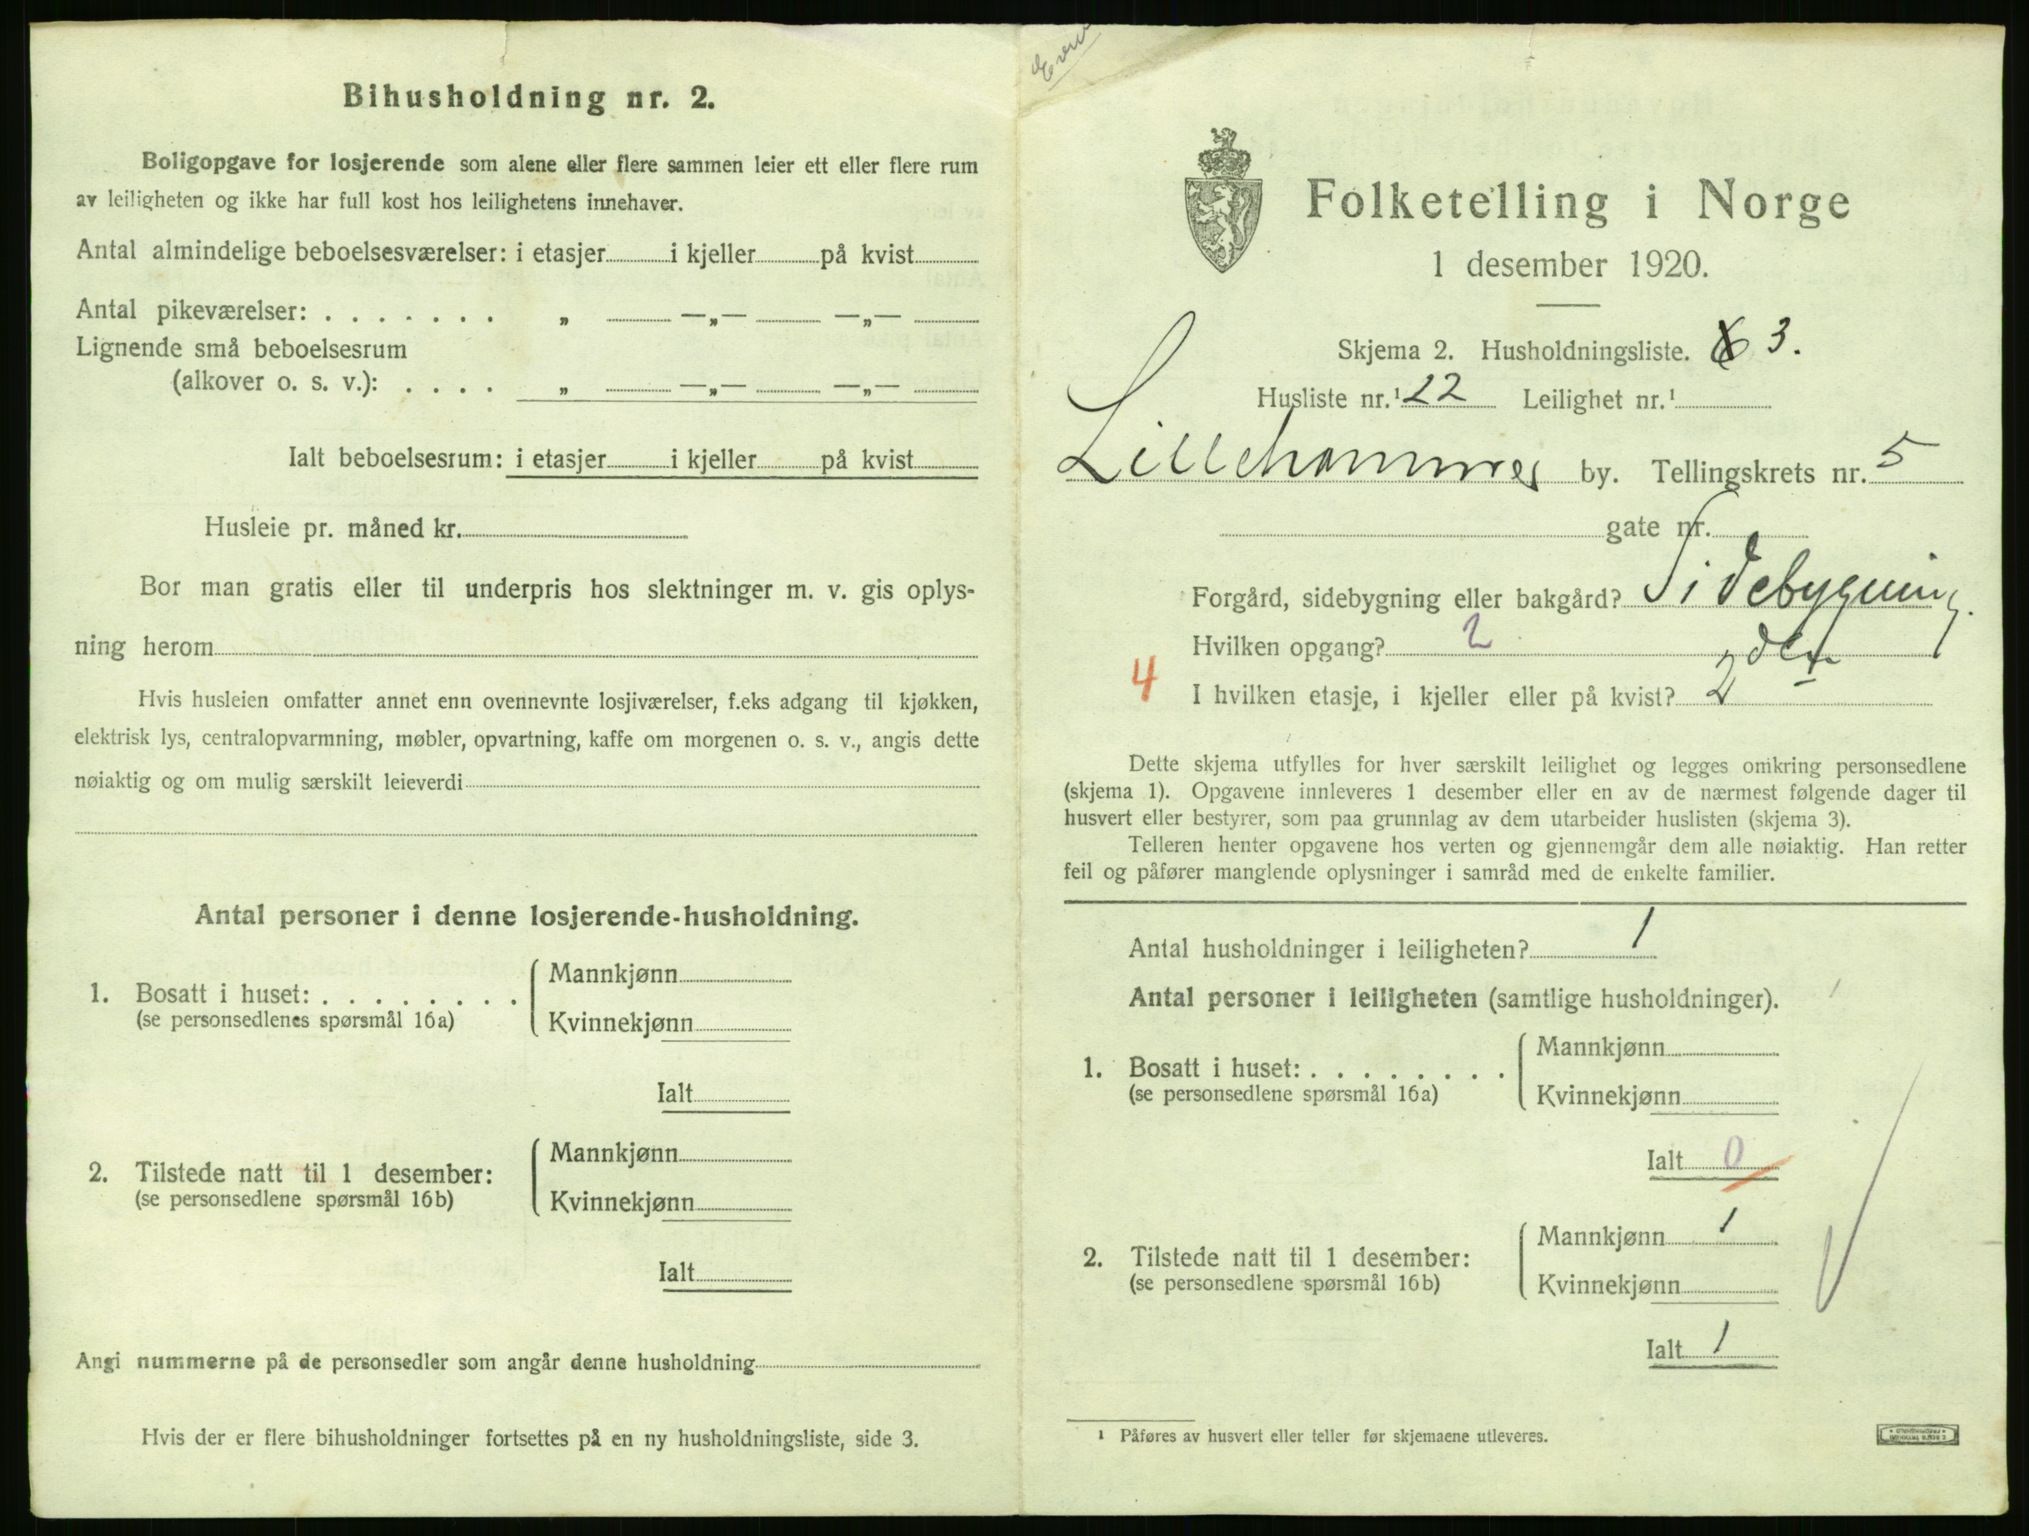 Bihusholdning nr. 2.
Boligopgave for losjerende som alene eller flere sammen leier ett eller flere rum
av leiligheten og ikke har full kost hos leilighetens innehaver.
Antal almindelige beboelsesværelser: i etasjer i kjeller på kvist
Antal pikeværelser: . . . . . . . „ —„— —„—
Lignende små beboelsesrum
(alkover o. s. v.): . . . . „ —„— —„—
Ialt beboelsesrum: i etasjer i kjeller på kvist
Husleie pr. måned kr.
Bor man gratis eller til underpris hos slektninger m. v. gis oplys-
ning herom
Hvis husleien omfatter annet enn ovennevnte losjiværelser, f.eks adgang til kjøkken,
elektrisk lys, centralopvarmning, møbler, opvartning, kaffe om morgenen o. s. v., angis dette
nøiaktig og om mulig særskilt leieverdi
Antal personer i denne losjerende-husholdning.
1. Bosatt i huset: . . . . . . . . Mannkjønn
(se personsedlenes spørsmål 16a) Kvinnekjønn
Ialt
2. Tilstede natt til 1 desember: Mannkjønn
(se personsedlene spørsmål 16b) Kvinnekjønn
Ialt
Angi nummerne på de personsedler som angår denne husholdning
Hvis der er flere bihusholdninger fortsettes på en ny husholdningsliste, side 3.
Folketelling i Norge
1 desember 1920.
Skjema 2. Husholdningsliste. 6 3.
Husliste nr.¹ 22 Leilighet nr.¹
Lillehammer by. Tellingskrets nr. 5
gate nr.
Forgård, sidebygning eller bakgård? Sidebygning.
Hvilken opgang? 2
4 I hvilken etasje, i kjeller eller på kvist? 2den
Dette skjema utfylles for hver særskilt leilighet og legges omkring personsedlene
(skjema 1). Opgavene innleveres 1 desember eller en av de nærmest følgende dager til
husvert eller bestyrer, som paa grunnlag av dem utarbeider huslisten (skjema 3).
Telleren henter opgavene hos verten og gjennemgår dem alle nøiaktig. Han retter
feil og påfører manglende oplysninger i samråd med de enkelte familier.
Antal husholdninger i leiligheten? 1
Antal personer i leiligheten (samtlige husholdninger).
1. Bosatt i huset: . . . . . . . . Mannkjønn
(se personsedlene spørsmål 16a) Kvinnekjønn
Ialt 0
2. Tilstede natt til 1 desember: Mannkjønn 1
(se personsedlene spørsmål 16b) Kvinnekjønn
Ialt 1
¹ Påføres av husvert eller teller før skjemaene utleveres.